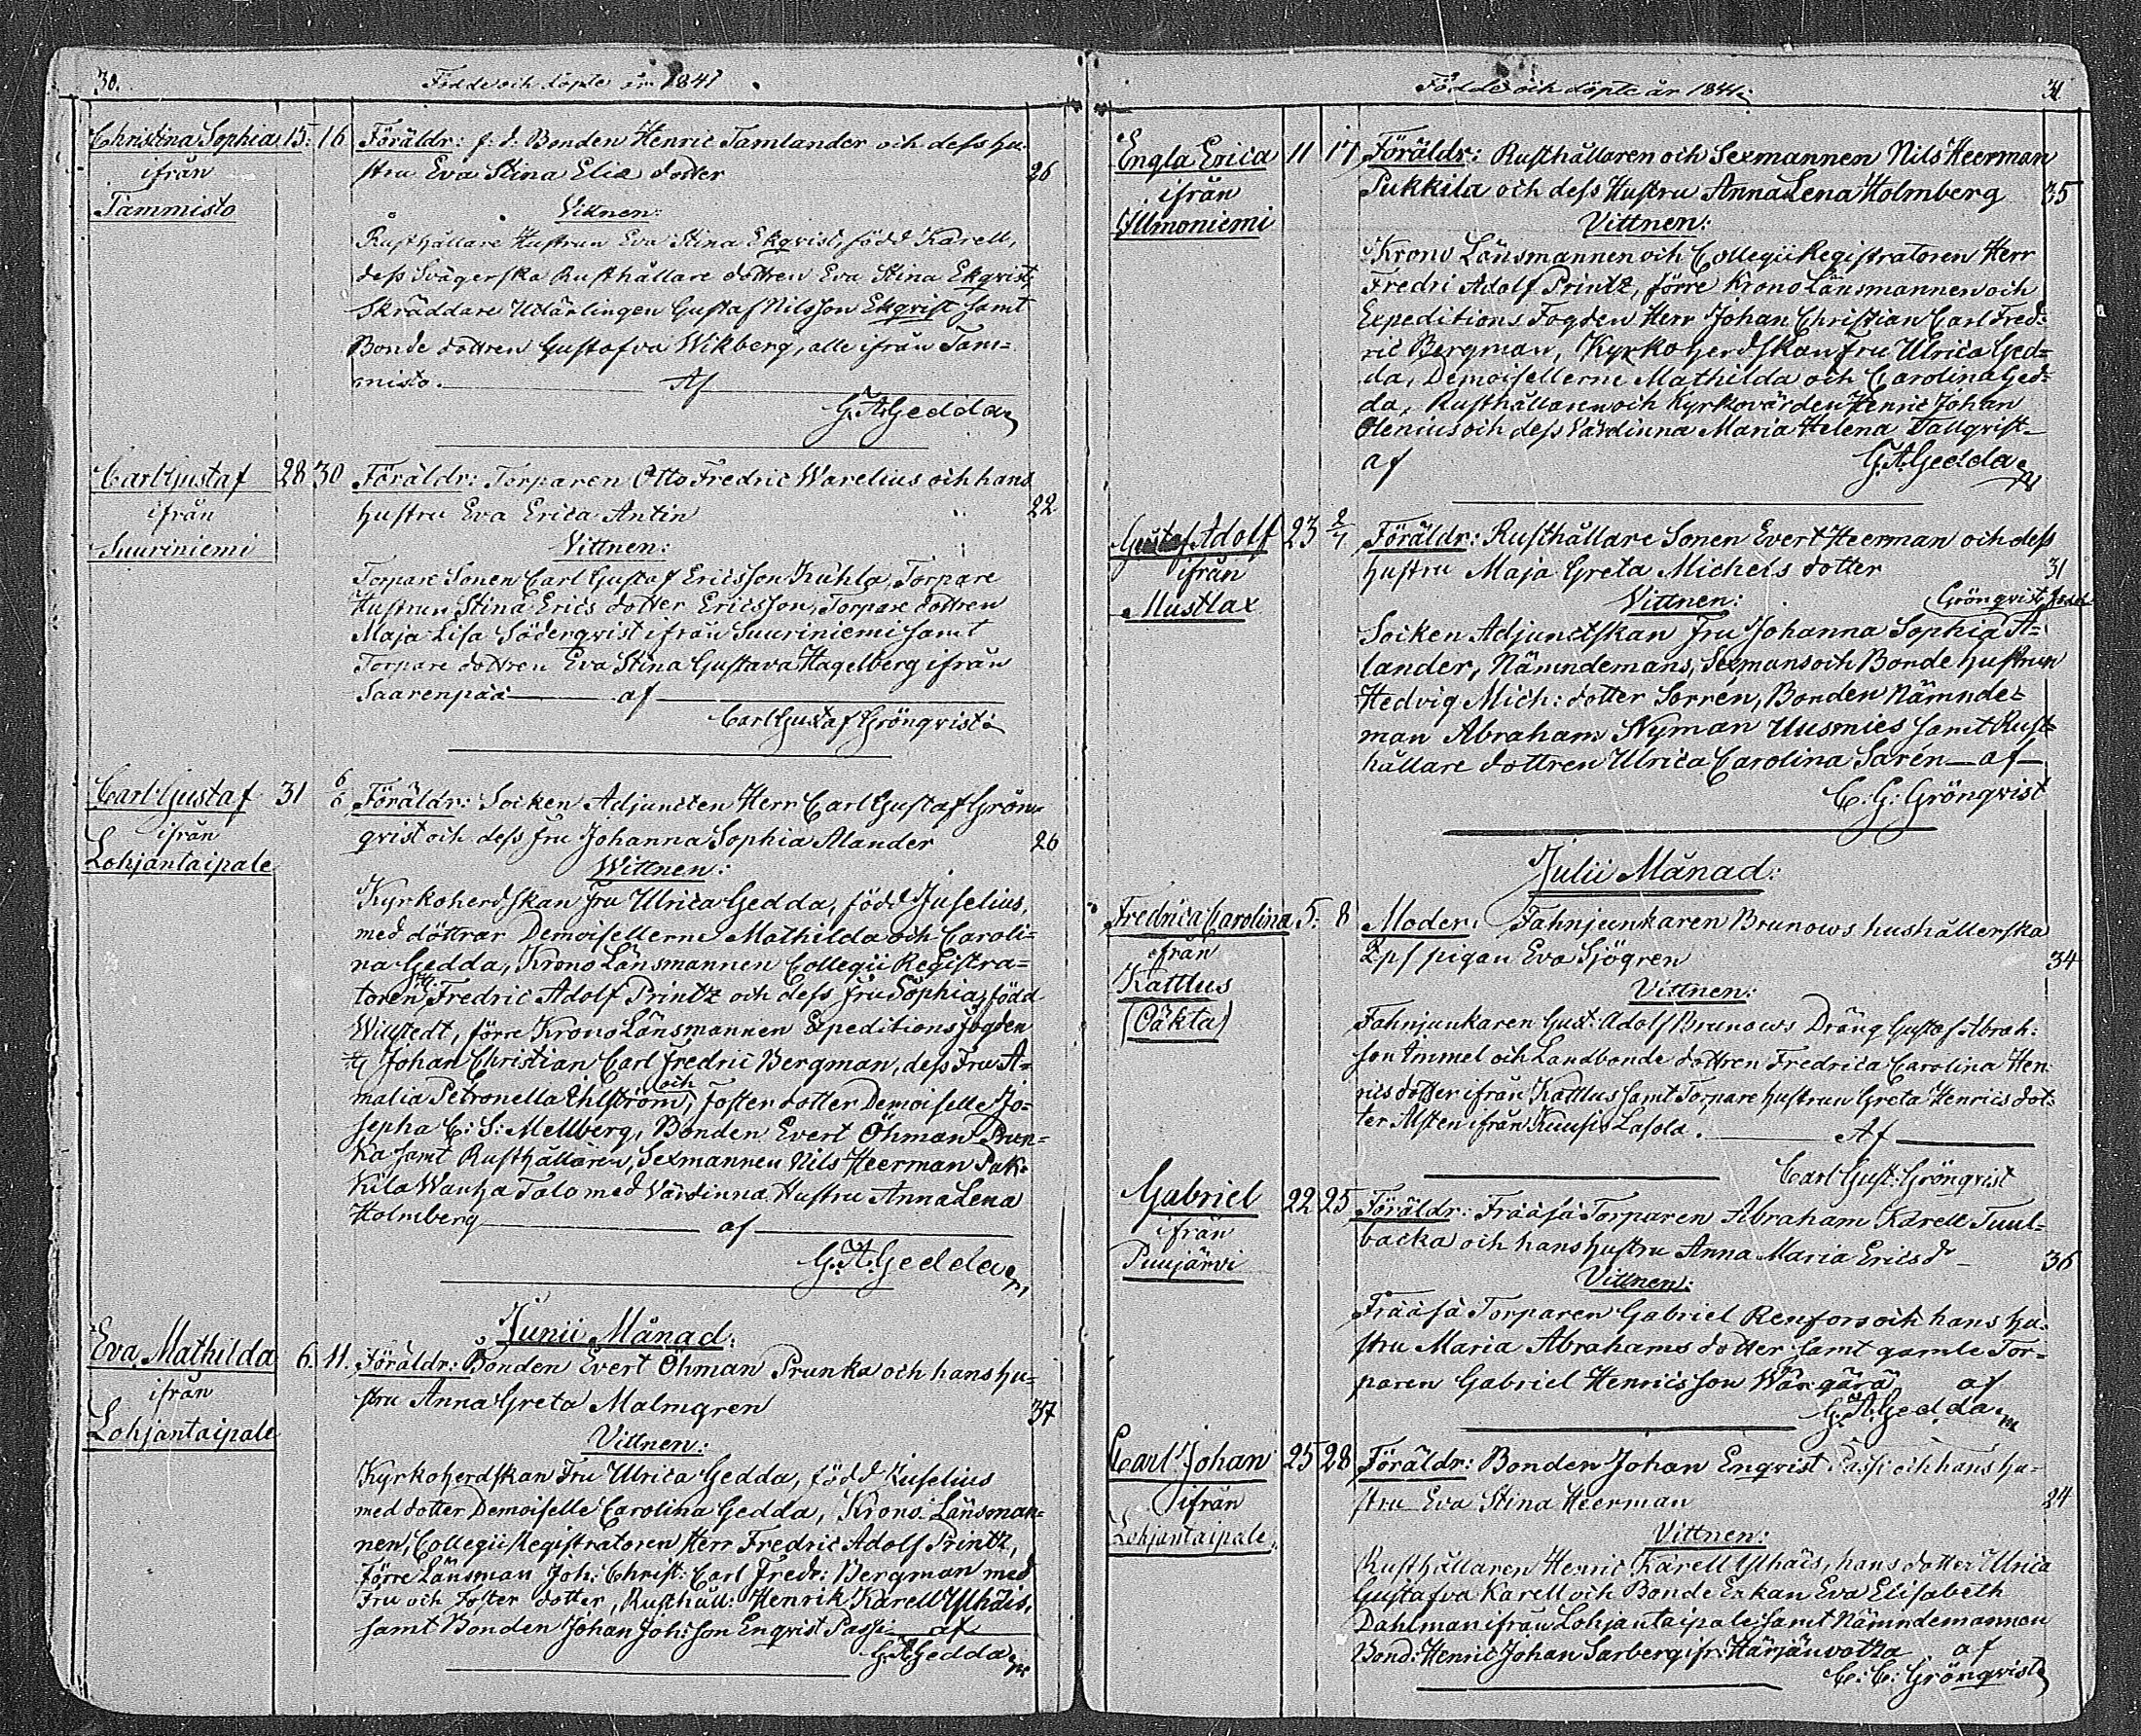 30.
Födde och döpte år 1841
Christina Sophia 15. 16 Föräldr: f. d. Bonden Henric Tamlander och dess hu-
ifrån stru Eva Stina Elia dotter 26
Tammisto
Vittnen:
Rusthållare Hustrun Eva Stina Ekqvist, född Karell,
dess Svägerska Rusthållare dottren Eva Stina Ekqvist,
Skräddare Utlärlingen Gustaf Nilsson Ekqvist samt
Bonde dottren Gustafva Wikberg, alle ifrån Tam=
misto. Af
G. A. Gedda
Carl Gustaf 28 30 Föräldr: Torparen Otto Fredric Warelius och hans
ifrån hustru Eva Erica Antin 22
Suuriniemi
Vittnen:
Torpare Sonen Carl Gustaf Ericsson Kuhla, Torpare
Hustrun Stina Erics dotter Ericsson, Torpare dottren
Maja Lisa Söderqvist ifrån Suuriniemi samt
Torpare dottren Eva Stina Gustava Hagelberg ifrån
Saarenpää af
Carl Gustaf Grönqvist
Carl Gustaf 31 6/6 Föräldr: Socken Adjuncten Herr Carl Gustaf Grön=
ifrån qvist och dess fru Johanna Sophia Alander 26
Lohjantaipale
Wittnen:
Kyrkoherdskan fru Ulrica Gedda, född Juselius,
med döttrar Demoisellerne Mathilda och Caroli=
na Gedda, Krono Länsmannen Collegii Registra=
toren Hr Fredric Adolf Printz och dess fru Sophia, född
Wigstedt, förre Krono Länsmannen Expeditions fogden
Hr Johan Christian Carl Fredric Bergman, dess Fru A=
malia Petronella Ehlström, och Foster dotter Demoiselle Jo=
sepha C: S: Mellberg, Bonden Evert Öhman Prun=
ka samt Rusthållaren, Sexmannen Nils Heerman Puk=
kila Wanha Talo med Värdinna Hustru Anna Lena
Holmberg af
G. A. Gedda
Junii Månad:
Eva Mathilda 6. 11. Föräldr: Bonden Evert Öhman Prunka och hans hu=
ifrån stru Anna Greta Malmgren 37
Lohjantaipale
Vittnen:
Kyrkoherdskan Fru Ulrica Gedda, född Juselius
med dotter Demoiselle Carolina Gedda, Krono Länsman=
nen, Collegii Registratoren Herr Fredric Adolf Printz,
Förre Länsman Joh: Christ: Carl Fredr: Bergman med
Fru och Foster dotter, Rusthåll: Henrik Karell Ylhäis,
samt Bonden Johan Joh: son Enqvist Passi af
G. A. Gedda
Födde och döpte år 1841.
31
Engla Erica 11 17 Föräldr: Rusthållaren och Sexmannen Nils Heerman
ifrån Pukkila och dess Hustru Anna Lena Holmberg 35
Illmoniemi
Vittnen:
Krono Länsmannen och Collegii Registratoren Herr
Fredri Adolf Printz, förre Krono Länsmannen och
Expeditions Fogden Herr Johan Christian Carl Fred=
ric Bergman, Kyrkoherdskan fru Ulrica Ged=
da, Demoisellerne Mathilda och Carolina Ged=
da, Rusthållaren och Kyrkovärden Henric Johan
Olenius och dess Värdinna Maria Helena Tallqvist
af G. A. Gedda
Gustaf Adolf 23 2/7 Föräldr: Rusthållare Sonen Evert Heerman och dess
ifrån hustru Maja Greta Michels dotter 31
Mustlax
Vittnen: Grönqvist, född
Socken Adjunctskan Fru Johanna Sophia A=
lander, Nämndemans, Sexmans och Bonde hustrun
Hedvig Mich: dotter Sorrén, Bonden Nämnde=
man Abraham Nyman Uusmies samt Rust=
hållare dottren Ulrica Carolina Sarén af
C: G: Grönqvist
Julii Månad:
Fredrica Carolina 5. 8 Moder: Fahnjunkaren Brunows hushållerska
ifrån pigan Eva Sjögren 34
Kattlus
(Oäkta)
Vittnen:
Fahnjunkaren Gust: Adolf Brunows Dräng Gustaf Abrah:
son Immel och Landbonde dottren Fredrica Carolina Hen
rics dotter ifrån Kattlus samt Torpare hustrun Greta Henrics dot=
ter Alsten ifrån Kuusis Lasola. Af
Carl Gust: Grönqvist
Gabriel 22 25 Föräldr: Frääsä Torparen Abraham Karell Tuul=
ifrån backa och hans hustru Anna Maria Ericsd 36
Puujärvi
Vittnen:
Frääsä Torparen Gabriel Renfors och hans hu=
stru Maria Abrahams dotter samt gamle Tor=
paren Gabriel Henricsson Wångärä af
G. A. Gedda
Carl Johan 25 28 Föräldr: Bonden Johan Enqvist Passi och hans hu=
ifrån stru Eva Stina Heerman 24
Lohjantaipale
Vittnen:
Rusthållaren Henric Karell Ylhäis, hans dotter Ulrica
Gustafva Karell och Bonde Enkan Eva Elisabeth
Dahlman ifrån Lohjantaipale samt Nämndemannen
Bond: Henric Johan Sarberg ifr: Härjänvatza af
C: G: Grönqvist